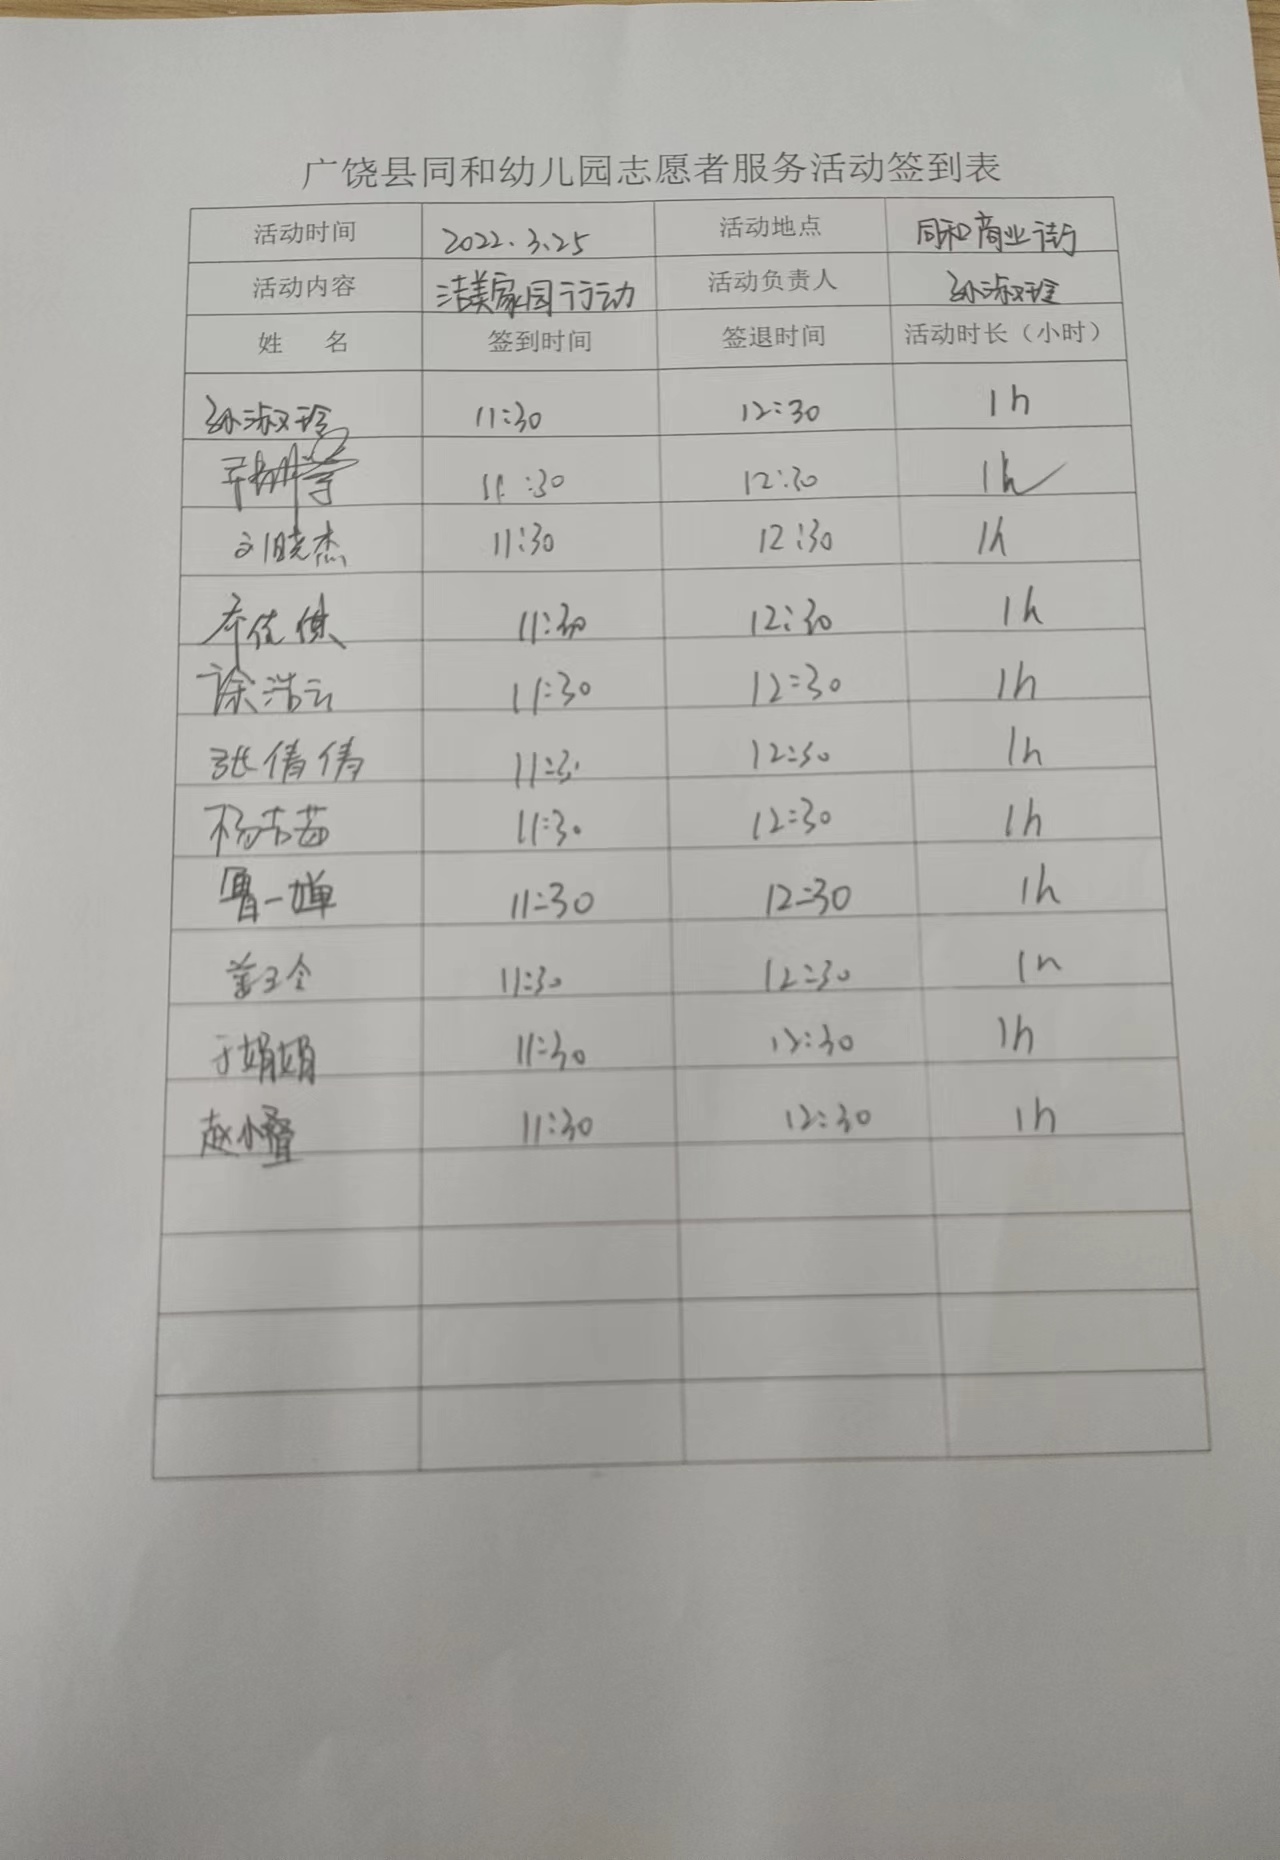 广饶县同和幼儿园志愿者服务活动签到表
活动时间 2022.3.25 活动地点 同和商业街
活动内容 洁美家园行动 活动负责人 孙淑玲
姓 名 签到时间 签退时间 活动时长（小时）
孙淑玲 11:30 12:30 1h
11:30 12:30 1h
刘晓杰 11:30 12:30 1h
11:30 12:30 1h
徐浩云 11:30 12:30 1h
张倩倩 11:30 12:30 1h
杨 11:30 12:30 1h
曹一婵 11:30 12:30 1h
姜玉令 11:30 12:30 1h
于娟娟 11:30 12:30 1h
赵小叠 11:30 12:30 1h